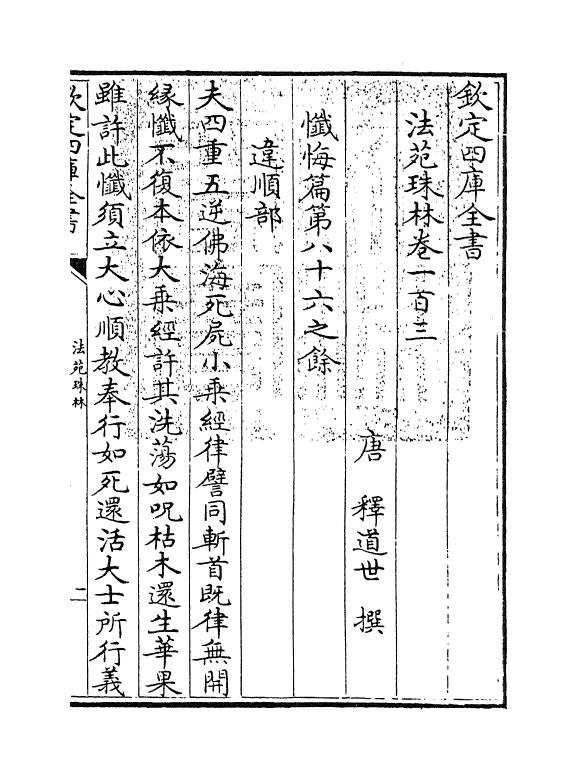 欽定四庫全書
法苑珠林卷一百三
唐 釋道世 撰
懺悔篇第八十六之餘
違順部
夫四重五逆佛海死屍小乗經律譬同斬首既律無開
縁懺不復本依大乗經許其洗蕩如呪枯木還生華果
雖許此懺須立大心順教奉行如死還活大士所行義
欽定四庫全書
法苑珠林
二